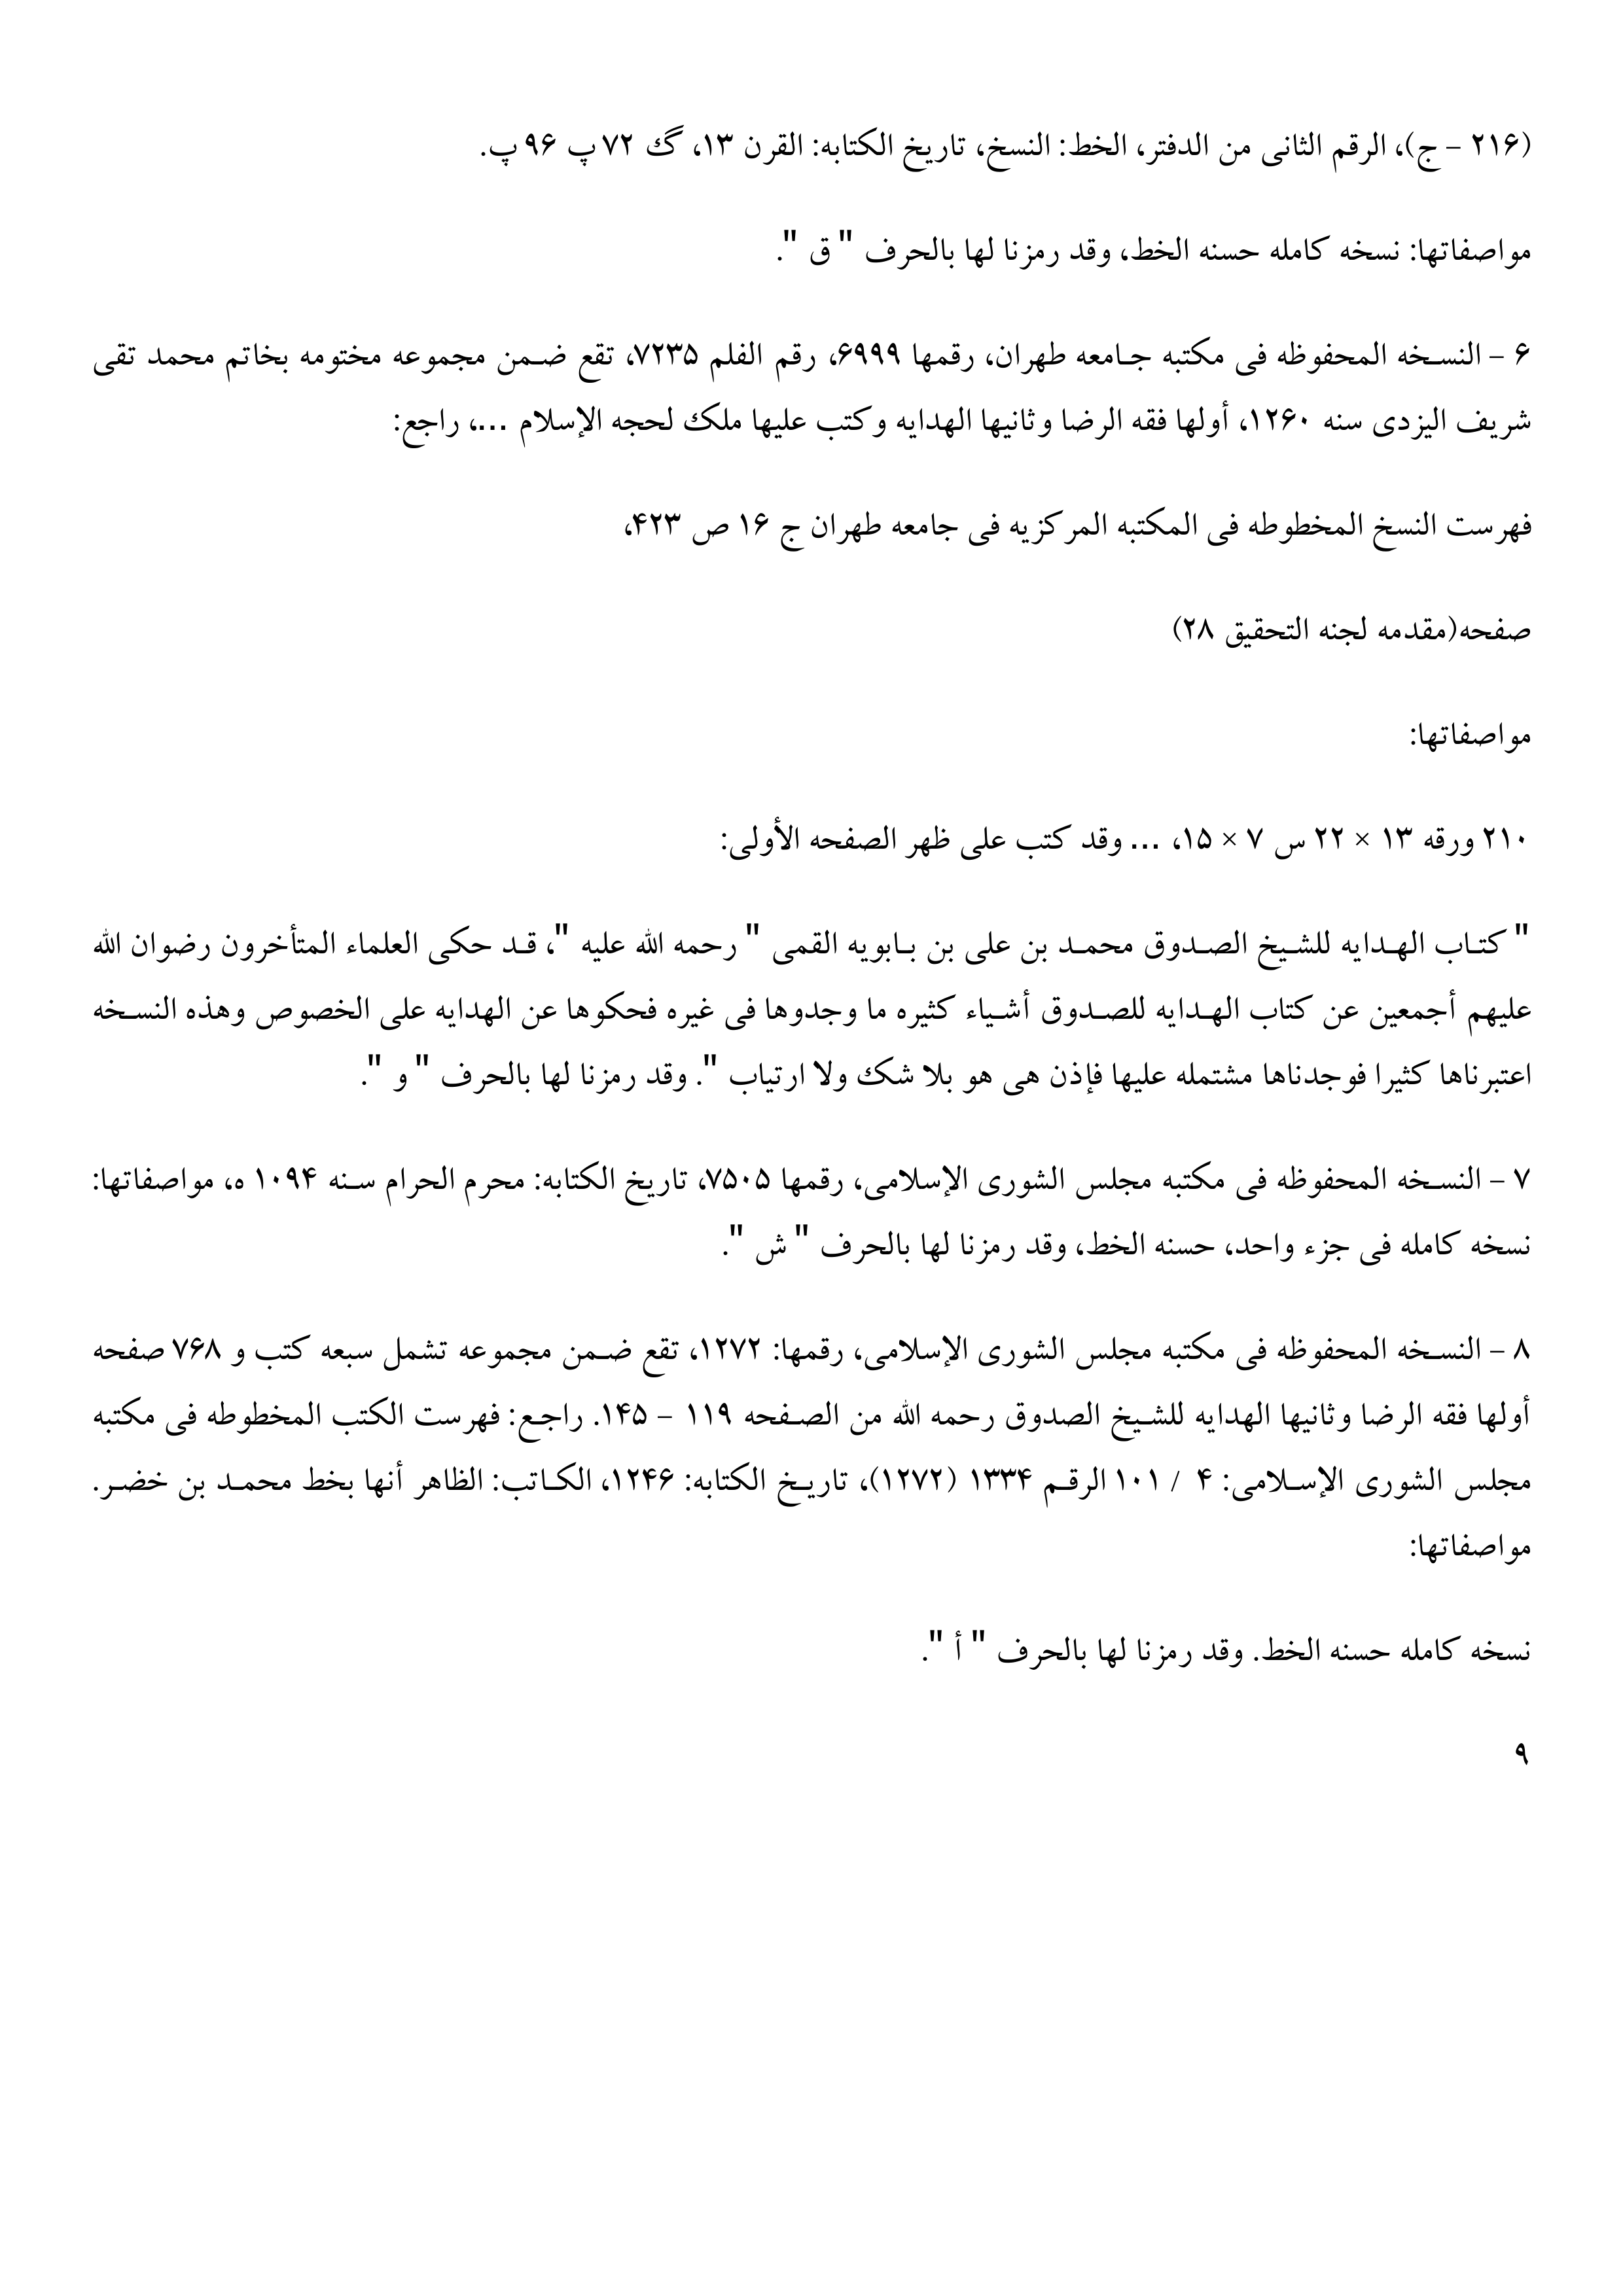 (۲۱۶ – ج)، الرقم الثانی من الدفتر، الخط: النسخ، تاریخ الکتابه: القرن ۱۳، گك ۷۲ پ ۹۶ پ.
مواصفاتها: نسخه کامله حسنه الخط، وقد رمزنا لها بالحرف " ق ".
۶ – النسخه المحفوظه فی مکتبه جامعه طهران، رقمها ۶۹۹۹، رقم الفلم ۷۲۳۵، تقع ضمن مجموعه مختومه بخاتم محمد تقی
شریف الیزدی سنه ۱۲۶۰، أولها فقه الرضا وثانیها الهدایه وکتب علیها ملک لحجه الإسلام ...، راجع:
فهرست النسخ المخطوطه فی المکتبه المرکزیه فی جامعه طهران ج ۱۶ ص ۴۲۳،
صفحه(مقدمه لجنه التحقیق ۲۸)
مواصفاتها:
۲۱۰ ورقه ۱۳ × ۲۲ س ۷ × ۱۵، ... وقد کتب علی ظهر الصفحه الأولی:
" کتاب الهدایه للشیخ الصدوق محمد بن علی بن بابویه القمی " رحمه الله علیه "، قد حکی العلماء المتأخرون رضوان الله
علیهم أجمعین عن کتاب الهدایه للصدوق أشیاء کثیره ما وجدوها فی غیره فحکوها عن الهدایه علی الخصوص وهذه النسخه
اعتبرناها کثیرا فوجدناها مشتمله علیها فإذن هی هو بلا شک ولا ارتیاب ". وقد رمزنا لها بالحرف " و ".
۷ – النسخه المحفوظه فی مکتبه مجلس الشوری الإسلامی، رقمها ۷۵۰۵، تاریخ الکتابه: محرم الحرام سنه ۱۰۹۴ ه، مواصفاتها:
نسخه کامله فی جزء واحد، حسنه الخط، وقد رمزنا لها بالحرف " ش ".
۸ – النسخه المحفوظه فی مکتبه مجلس الشوری الإسلامی، رقمها: ۱۲۷۲، تقع ضمن مجموعه تشمل سبعه کتب و ۷۶۸ صفحه
أولها فقه الرضا وثانیها الهدایه للشیخ الصدوق رحمه الله من الصفحه ۱۱۹ – ۱۴۵. راجع: فهرست الکتب المخطوطه فی مکتبه
مجلس الشوری الإسلامی: ۴ / ۱۰۱ الرقم ۱۳۳۴ (۱۲۷۲)، تاریخ الکتابه: ۱۲۴۶، الکاتب: الظاهر أنها بخط محمد بن خضر.
مواصفاتها:
نسخه کامله حسنه الخط. وقد رمزنا لها بالحرف " أ ".
۹